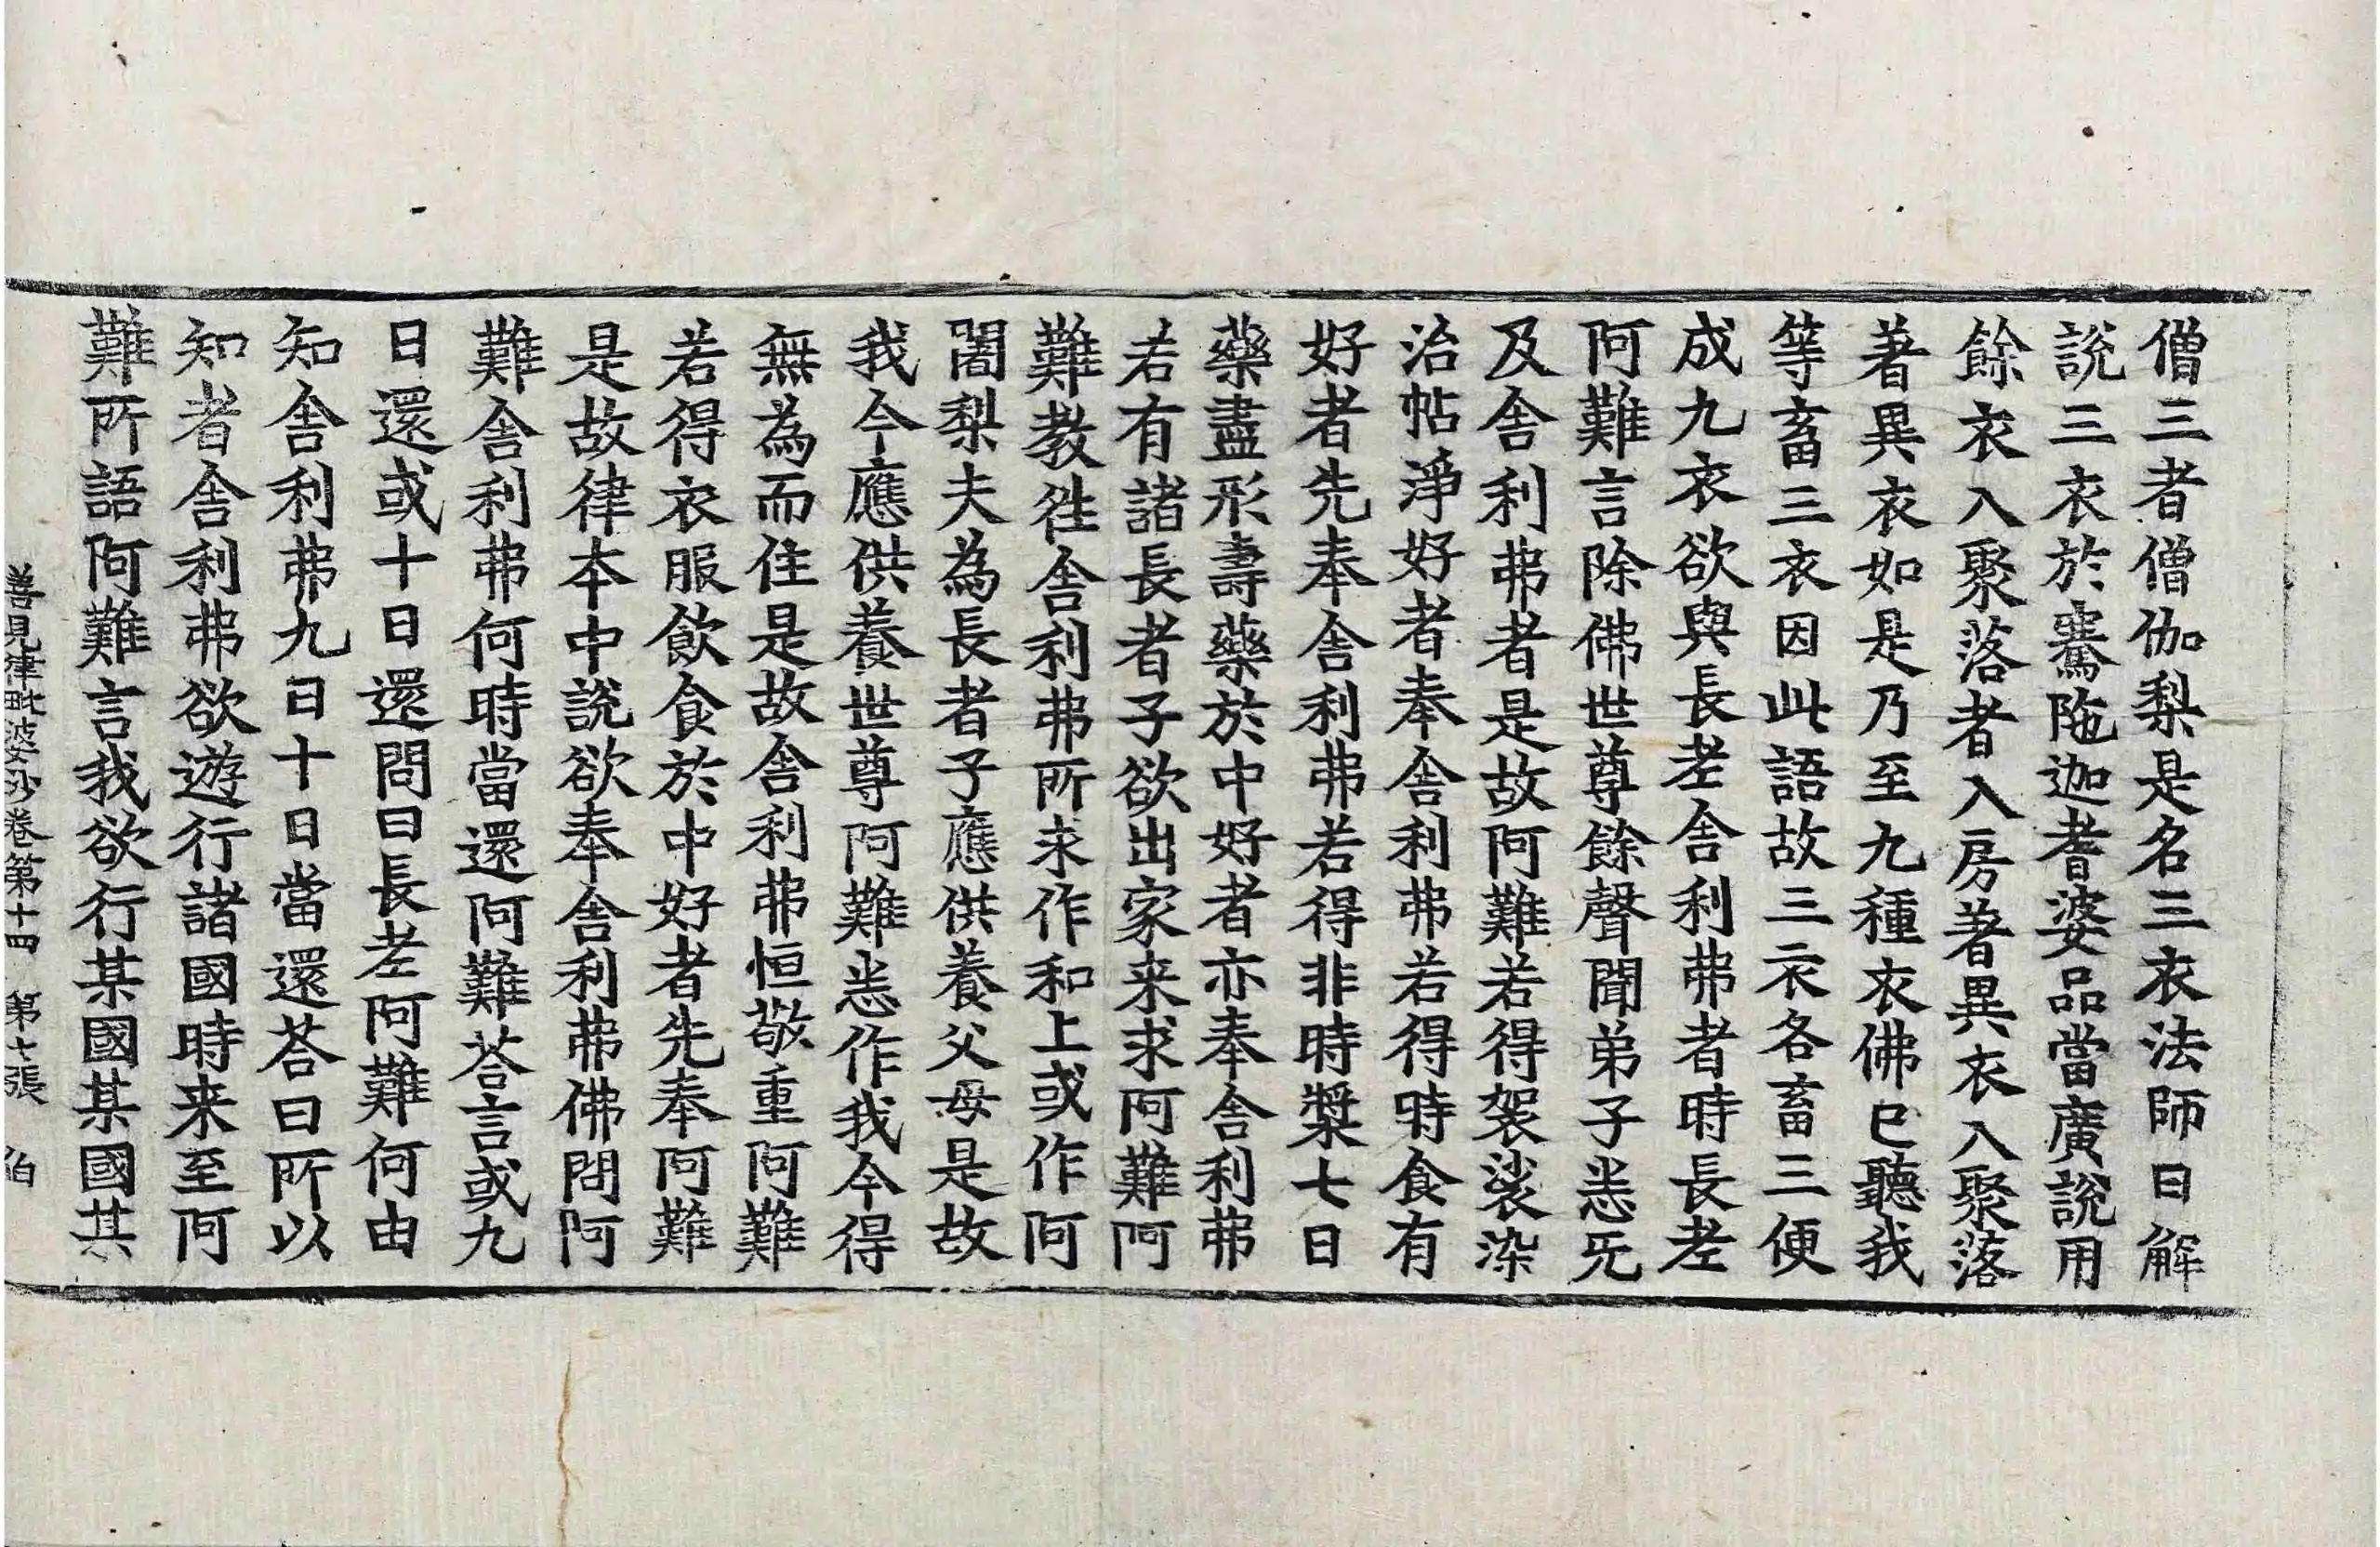 僧三者僧伽梨是名三衣法師曰解
說三衣於騫陁迦耆婆品當廣說用
餘衣入聚落者入房著異衣入聚落
著異衣如是乃至九種衣佛已聽我
等畜三衣因此語故三衣各畜三便
成九衣欲與長老舍利弗者時長老
阿難言除佛世尊餘聲聞弟子悉无
及舍利弗者是故阿難若得袈裟染
治帖淨好者奉舍利弗若得時食有
好者先奉舍利弗若得非時漿七日
藥盡形壽藥於中好者亦奉舍利弗
若有諸長者子欲出家来求阿難阿
難教往舍利弗所求作和上或作阿
闍梨夫為長者子應供養父母是故
我今應供養世尊阿難悉作我今得
無為而住是故舍利弗恒敬重阿難
若得衣服飲食於中好者先奉阿難
是故律本中說欲奉舍利弗佛問阿
難舍利弗何時當還阿難荅言或九
日還或十日還問曰長老阿難何由
知舍利弗九日十日當還荅曰所以
知者舍利弗欲遊行諸國時来至阿
難所語阿難言我欲行某國某國某
善見律毗婆沙卷第十四 第七張 伯